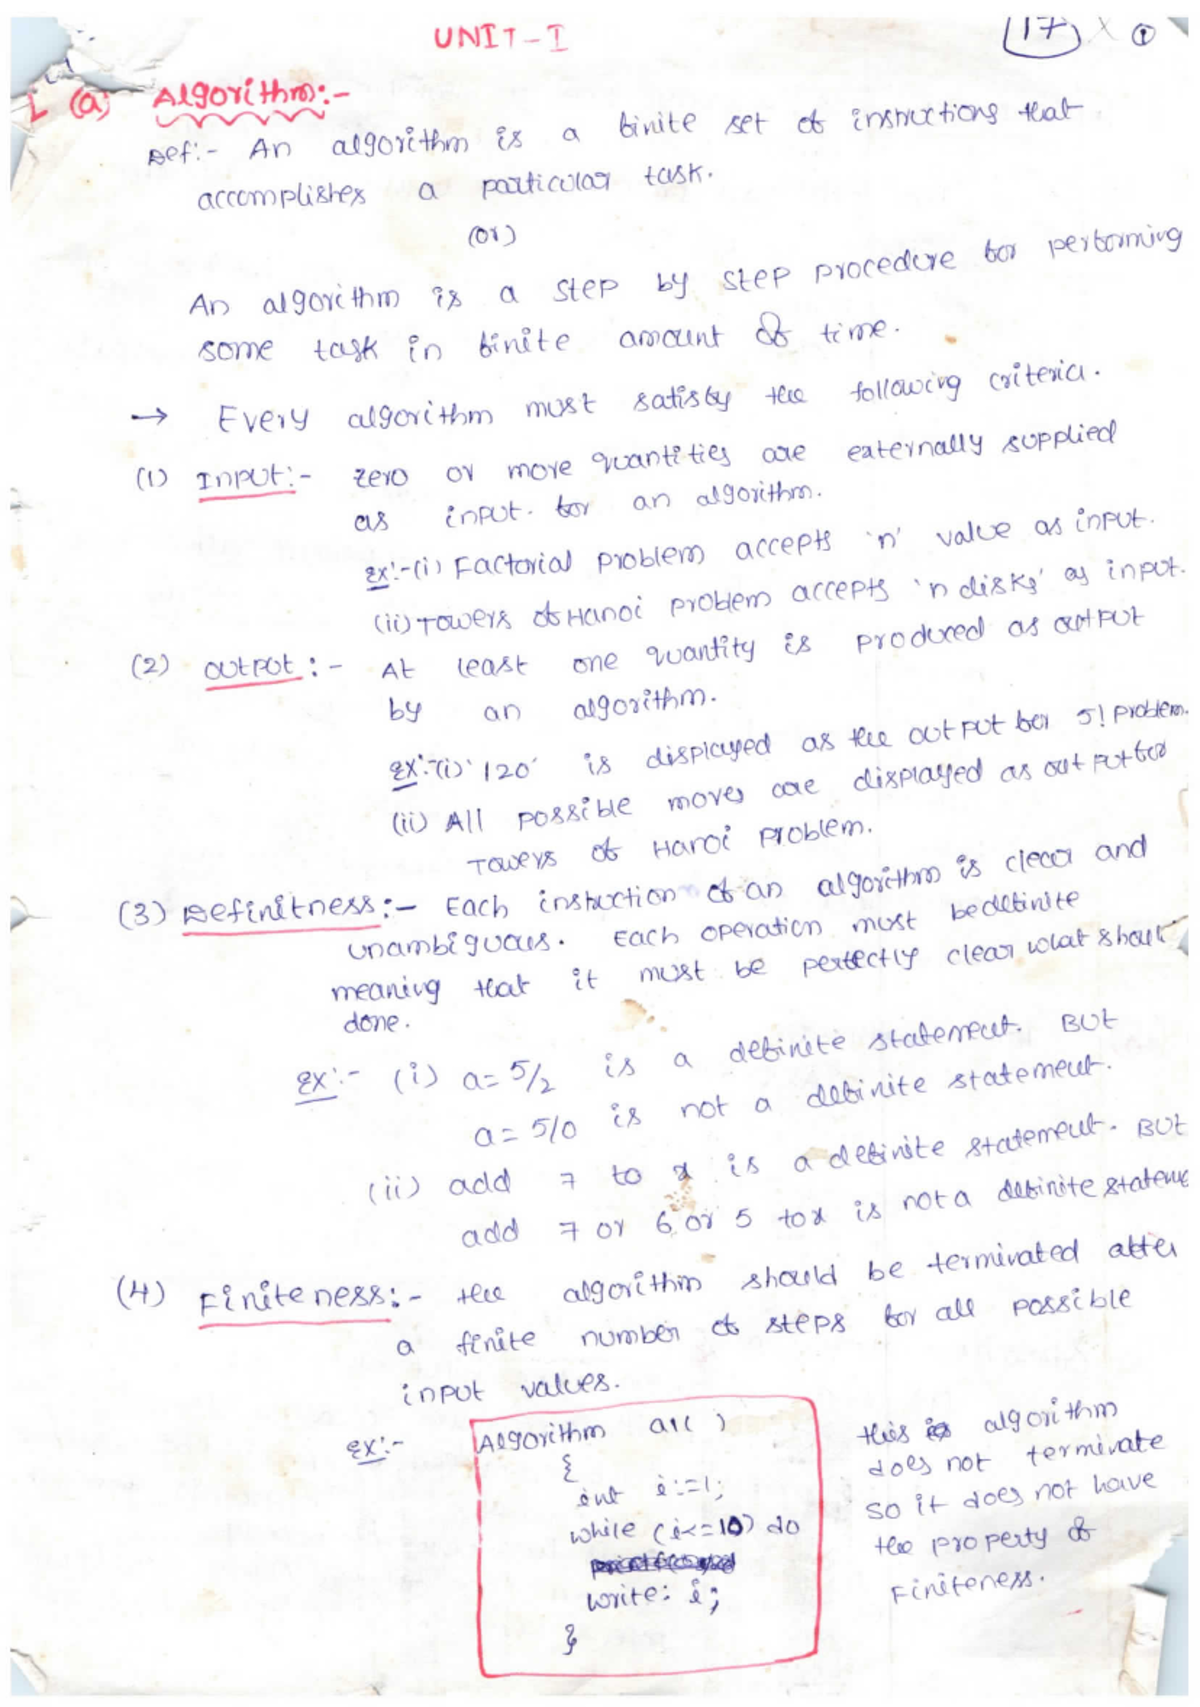 UNIT-I
17 ①
1. (a) Algorithm:-
Def:- An algorithm is a finite set of instructions that
accomplishes a particular task.
(or)
An algorithm is a step by step procedure for performing
some task in finite amount of time.
→ Every algorithm must satisfy the following criteria.
(1) INPUT:- zero or more quantities are externally supplied
as input. for an algorithm.
Ex:-(i) Factorial problem accepts 'n' value as input.
(ii) Towers of Hanoi problem accepts 'n disks' as input.
(2) output:- At least one quantity is produced as output
by an algorithm.
Ex:-(i) '120' is displayed as the output for 5! problem.
(ii) All possible moves are displayed as output for
Towers of Hanoi problem.
(3) Definitness:- Each instruction of an algorithm is clear and
unambiguous. Each operation must be definite
meaning that it must be perfectly clear what shoul
done.
Ex:- (i) a=5/2 is a definite statement. But
a=5/0 is not a definite statement.
(ii) add 7 to x is a definite statement. But
add 7 or 6 or 5 to x is not a definite stateme
(4) Finiteness:- the algorithm should be terminated after
a finite number of steps for all possible
input values.
Ex:- Algorithm a1( )
{
int i:=1;
while (i<=10) do
write: i;
}
this algorithm
does not terminate
so it does not have
the property of
Finiteness.